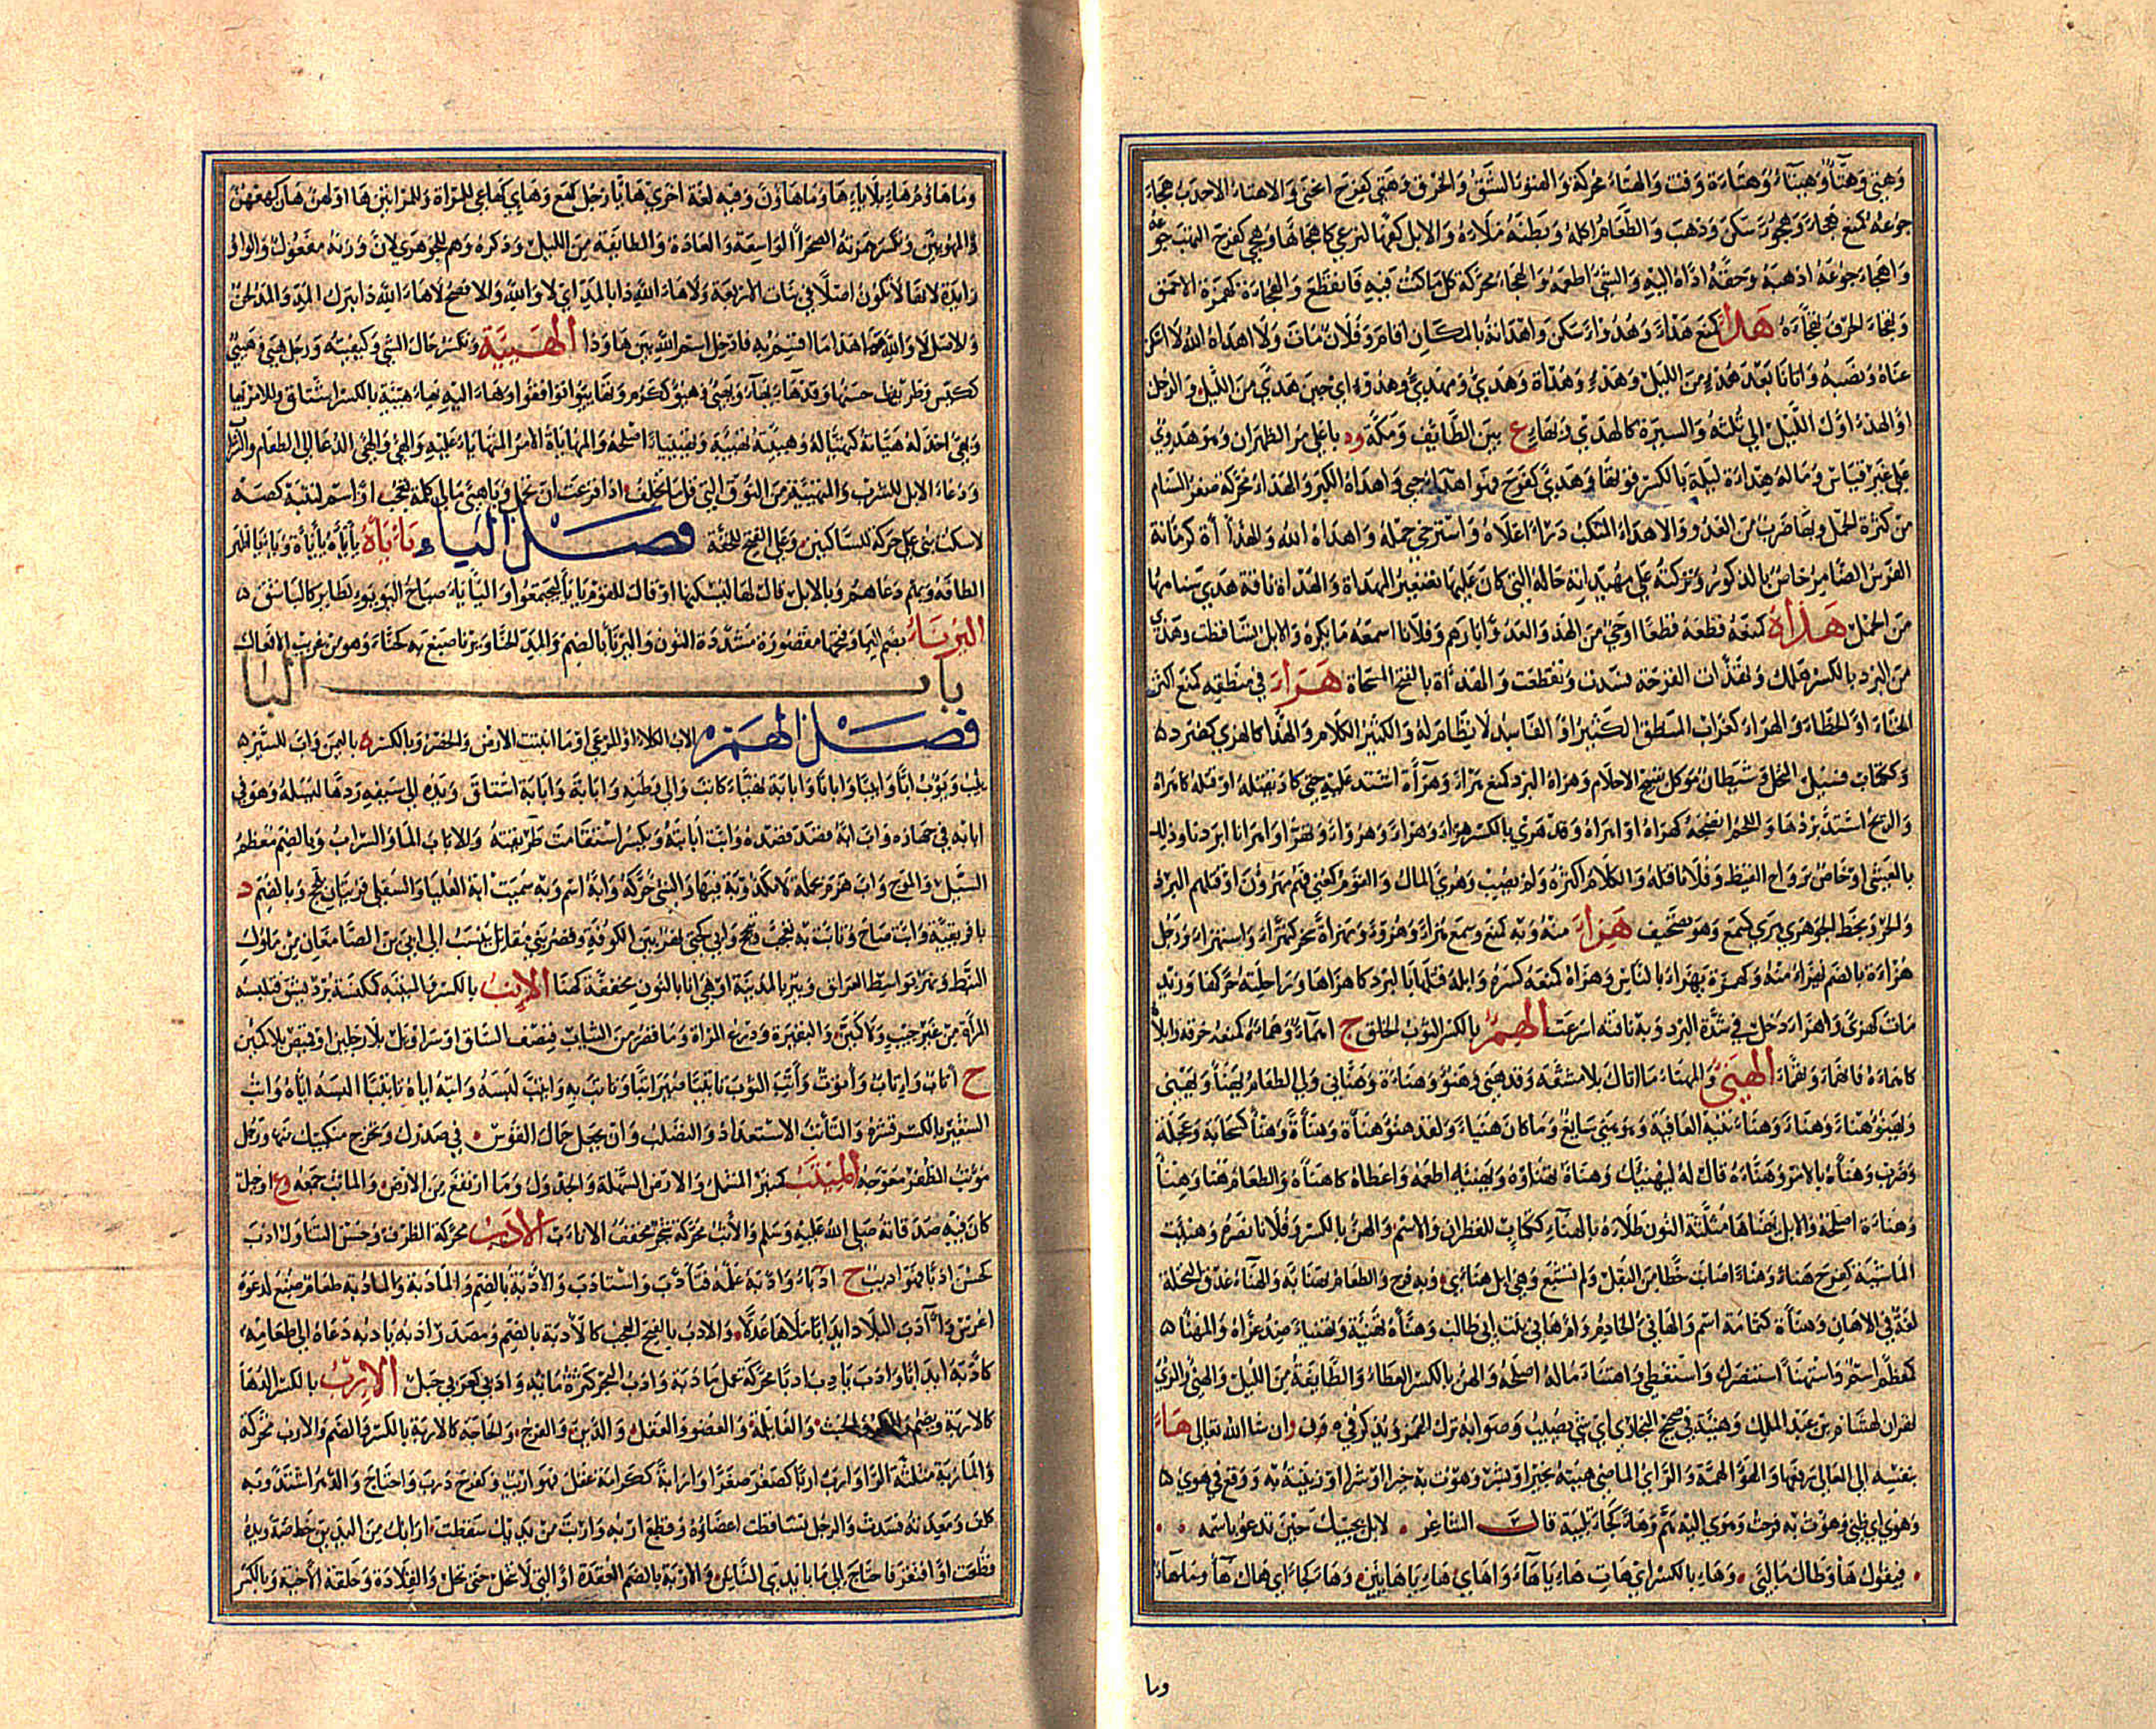 وهتئ وهتأ وهتاء وهتاءة وقت والهتأ محركة والهتوء الشق والخرق وهتئ كفرح انحنى والاهتاء الاحدب هجاء
جوعه كمنع هجاء وهجوءا سكن وذهب والطعام اكله وبطنه ملاءه والابل كفها لترعى كاهجاها وهجئ كفرح التهب جوعه
واهجاء جوعه اذهبه وحقه اداه اليه والشئ اطعمه والهجاء محركة كل ما كنت فيه فانقطع والهجاءة كهمزة الاحمق
وتهجاء الحرف تهجاه هدا كمنع هداء وهدوءا سكن واهداته بالمكان اقام وفلان مات ولا اهداه الله لا اسكن
عناه ونصبه واتانا بعد هدء من الليل وهدء وهداة وهدئ ومهدئ وهدوء اي حين هدئ من الليل والرجل
او الهدء اول الليل الى ثلثه والسيرة كالهدي وبهاء ع بين الطائف ومكة وة باعلى مر الظهران وهو هدوي
على غير قياس وماله هداءة ليلة بالكسر قوتها وهدئ كفرح فهو اهداء جئ واهداه الكبر والهداء محركة صغر السنام
من كثرة الحمل وبهاء ضرب من العدو والاهداء المنكب درم اعلاه واسترخى حمله واهداه الله والهداأة كرمانة
الفرس الضامر خاص بالذكور وتركته على مهيدئته حاله التي كان عليها تصغير المهداة والهداة ناقة هدئ سنامها
من الحمل هذأه كمنعه قطعه قطعا اوحى من الهذ والعدو ابارهم وفلانا اسمعه ما يكره والابل تساقطت وهذئ
من البرد بالكسر هلك وتهذأت القرحة فسدت وتقطعت والهذأة بالفتح المسحاة هراء في منطقه كمنع اكثر
الخناء او الخطاء والهراء كغراب المنطق الكثير او الفاسد لا نظام له والكثير الكلام والهذا كالهرئ كصرد
وككتاب فسيل النخل وشيطان موكل بقبيح الاحلام وهراه البرد كمنع هراء وهرأة اشتد عليه حتى كاد يقتله او قتله كاهراه
والريح اشتد بردها واللحم انضجه كهراه او اهراه وقد هرئ بالكسر هرءا وهراء وهروءا وتهرا واهرانا ابردنا وذلك
بالعشي او خاص برواح القيظ وفلانا قتله والكلام اكثره ولم يصب وهرئ المال والقوم كعني فهم مهروؤن او قتلهم البرد
والحر وبخط الجوهري هرئ كسمع وهو تصحيف هزاء منه وبه كمنع وسمع هزاء وهزوءة ومهزأة سخر كتهزاء واستهزاء ورجل
هزاءة بالضم يهزاء منه وكهمزة يهزاء بالناس وهزاه كمنعه كسره وابله قتلها بالبرد كاهزاها وراحلته حركها وزيد
مات كهزئ واهزاء دخل في شدة البرد وبه ناقته اسرعت الهمء بالكسر الثوب الخلق ج اهماء وهماءه كمنعه خرقه وابلاه
كاهماءه فانهماء وتهماء الهنئ والمهناء ما اتاك بلا مشقة وقد هنئ وهنؤ وهناءة وهنأني ولي الطعام يهنأ ويهنئ
ويهنؤ هناء وهناء وهناءته العافية وهو هنئ سائغ وما كان هنيا ولقد هنؤ هناة وهناءة وهنأ كسحابة وعجلة
وضرب وهناءه بالامر وهناءه قال له ليهنيك وهناءه يهناؤه ويهنئه اطعمه واعطاه كاهناءه والطعام هنا وهنأ
وهناءة اصلحه والابل يهناها مثلثة النون طلاها بالهناء ككتاب للقطران والاسم والهنء بالكسر وفلانا نصره وهنئت
الماشية كفرح هناء وهناء اصابت حظا من البقل ولم تشبع وهي ابل هنائي وبه فرح والطعام تهنا به والهناء عذق النخلة
لغة في الاهان وهناءة كثمامة اسم والهانئ الخادم وام هانئ بنت ابي طالب وهناءه تهنئة وتهنيا ضد عزاه والمهنا
كمعظم اسم واستهنا استنصر واستعطى واهتناء ماله اصلحه والهنء بالكسر العطاء والطائفة من الليل والهنئ والمرئ
نهران لهشام بن عبد الملك وهنية في صحيح البخاري اي شئ يصيب وصوابه ترك الهمز ويذكر في ه ن و ان شا الله تعالى هاء
بنفسه الى المعالي يرفعها والهوء الهمة والراي الماضي هؤته بخير او بشر وهؤت به خيرا او شرا ازننته به ووقع في هوئي
وهوئي اي ظني وهؤت به فرحت وهوئ اليه هم وهاء كجاء تلبية قال الشاعر لا بل يجيبك حين تدعو باسمه
فيقول هاء وطال ما لبى وهاء بالكسر اي هات هاء يا هاء واهاي هاء يا هائين وهاء كجاء اي هاك هاء وهاؤماء
وما
وماهاؤم هاء بلا ياء هاؤما هاؤن وفيه لغة اخرى هاء يا رجل كهع وهائي كهاعي للمراة وللمراتين هاءا ولهن هان كهعهن
والمهوئن وتكسر همزته الصحرا الواسعة والعادة والطائفة من الليل وذكره وهم للجوهري لان وزنه مفعول والواو
زايدة لانها لا تكون اصلا في بنات الاربعة ولا هاء الله ذا بالمد اي لا والله والافصح لاها الله ذا بترك المد والمد لحن
والاصل لا والله هذا ما اقسم به فادخل اسم الله بين ها وذا الهيئة وتكسر حال الشئ وكيفيته ورجل هيئ وهيئ
ككيس وظريف حسنها وقد هاء يهاء ويهئ وهيؤ ككرم وتهايئوا توافقوا وهاء اليه يهاء هيئة بالكسر اشتاق وللامر يها
ويهئ اخذ له هيئاته كتهيأ له وهياه تهيئة وتهييا اصلحه والمهاياة الامر المتهايا عليه والهئ والهئ الدعا الى الطعام والشراب
ودعاء الابل للشرب والمتهيئة من النوق التي قل ما تخلف اذا قرعت ان تحمل ويا هئ مالي كلمة تعجب او اسم لتنبه كصه
لاسكت بني على حركة للساكنين وعلى الفتح للخفة فصل الياء يأيأه يأيأة ويأياء اظهر
الطافه وبهم دعاهم وبالابل قال لها ليسكنها او قال للقوم يايا ليجتمعوا واليأياء صياح اليؤيؤ لطاير كالباشق
اليرناء بضم اليا وفتحها مقصورة مشددة النون واليرنا بالضم والمد الحنا ويرنا صبغ به كحناء وهو من غريب الافعال
باب البا
فصل الهمزه الاب الكلاء او المرعى او ما انبتت الارض والخضر وبالكسر ة باليمن واب للسير
يئب ويؤب ابا وابيبا وابابا وابابة تهيا كائتب والى وطنه وابابة وابابة اشتاق ويده الى سيفه ردها ليسله وهو في
ابابه في جهازه واب ابه قصد قصده وابت ابابته ويكسر استقامت طريقته والاباب الما والسراب وبالضم معظم
السيل والموج واب هزم بحملة لا مكذوبة فيها والشئ حركه وابة اسم وبه سميت ابة العليا والسفلى قريتان بلحج وبالضم د
بافريقية وابب صاح وتابب به تعجب وتبجح وابى كحتى نهر بين الكوفة وقصر بني مقاتل ينسب الى ابى بن الصامغان من ملوك
النبط ونهر بواسط العراق وبير بالمدينة او هي انا بالنون مخففة كهنا الإتب بالكسر والمئتبة كمكنسة برد يشق فتلبسه
المرأة من غير جيب ولا كمين والبقيرة ودرع المراة وما قصر من الثياب فنصف الساق او سراويل بلا رجلين او قميص بلا كمين
ج آتاب واتاب واتوب وأتب الثوب تاتيبا صير اتبا وتاتب به وائتب لبسه واتبه اياه تاتيبا البسه اياه واتب
الشعير بالكسر قشره والتأتب الاستعداد والتصلب وان يجعل حمال القوس في صدرك وتخرج منكبيك منها ورجل
مؤتب الظفر معوجه المئثب كمنبر المشمل والارض السهلة والجدول وما ارتفع من الارض والماثب جمعه وع او جبل
كان فيه صدقاته صلى الله عليه وسلم والأثب محركة شجر مخفف الاثاب الأدب محركة الظرف وحسن التناول ادب
كحسن ادبا فهو اديب ج ادباء وادبه علمه فتأدب واستادب والأدبة بالضم والمأدبة والمأدبة طعام صنع لدعوة
او عرس وآدب البلاد ايدابا ملاها عدلا والادب بالفتح العجب كالادبة بالضم ومصدر ادبه يادبه دعاه الى طعامه
كآدبه ايدابا وادب يادب ادبا محركة عمل مادبة وادب البحر كثرة مائه وادبى كعربى جبل الإرب بالكسر الدها
كالاربة ويضم والنكر والخبث والغائلة والعضو والعقل والدين والفرج والحاجة كالاربة بالكسر والضم والارب محركة
والماربة مثلثة الراء وارب اربا كصغر صغرا وارابة ككرامة عقل فهو اريب وكفرح درب واحتاج والدهر اشتد وبه
كلف ومعدته فسدت والرجل تساقطت اعضاؤه وقطع اربه واربت من يديك سقطت ارابك من اليدين خاصة ويده
قطعت او افتقر فاحتاج الى ما بايدي الناس والأربة بالضم العقدة او التي لا تنحل حتى تحل والقلادة وحلقة الأخية وبالكسر